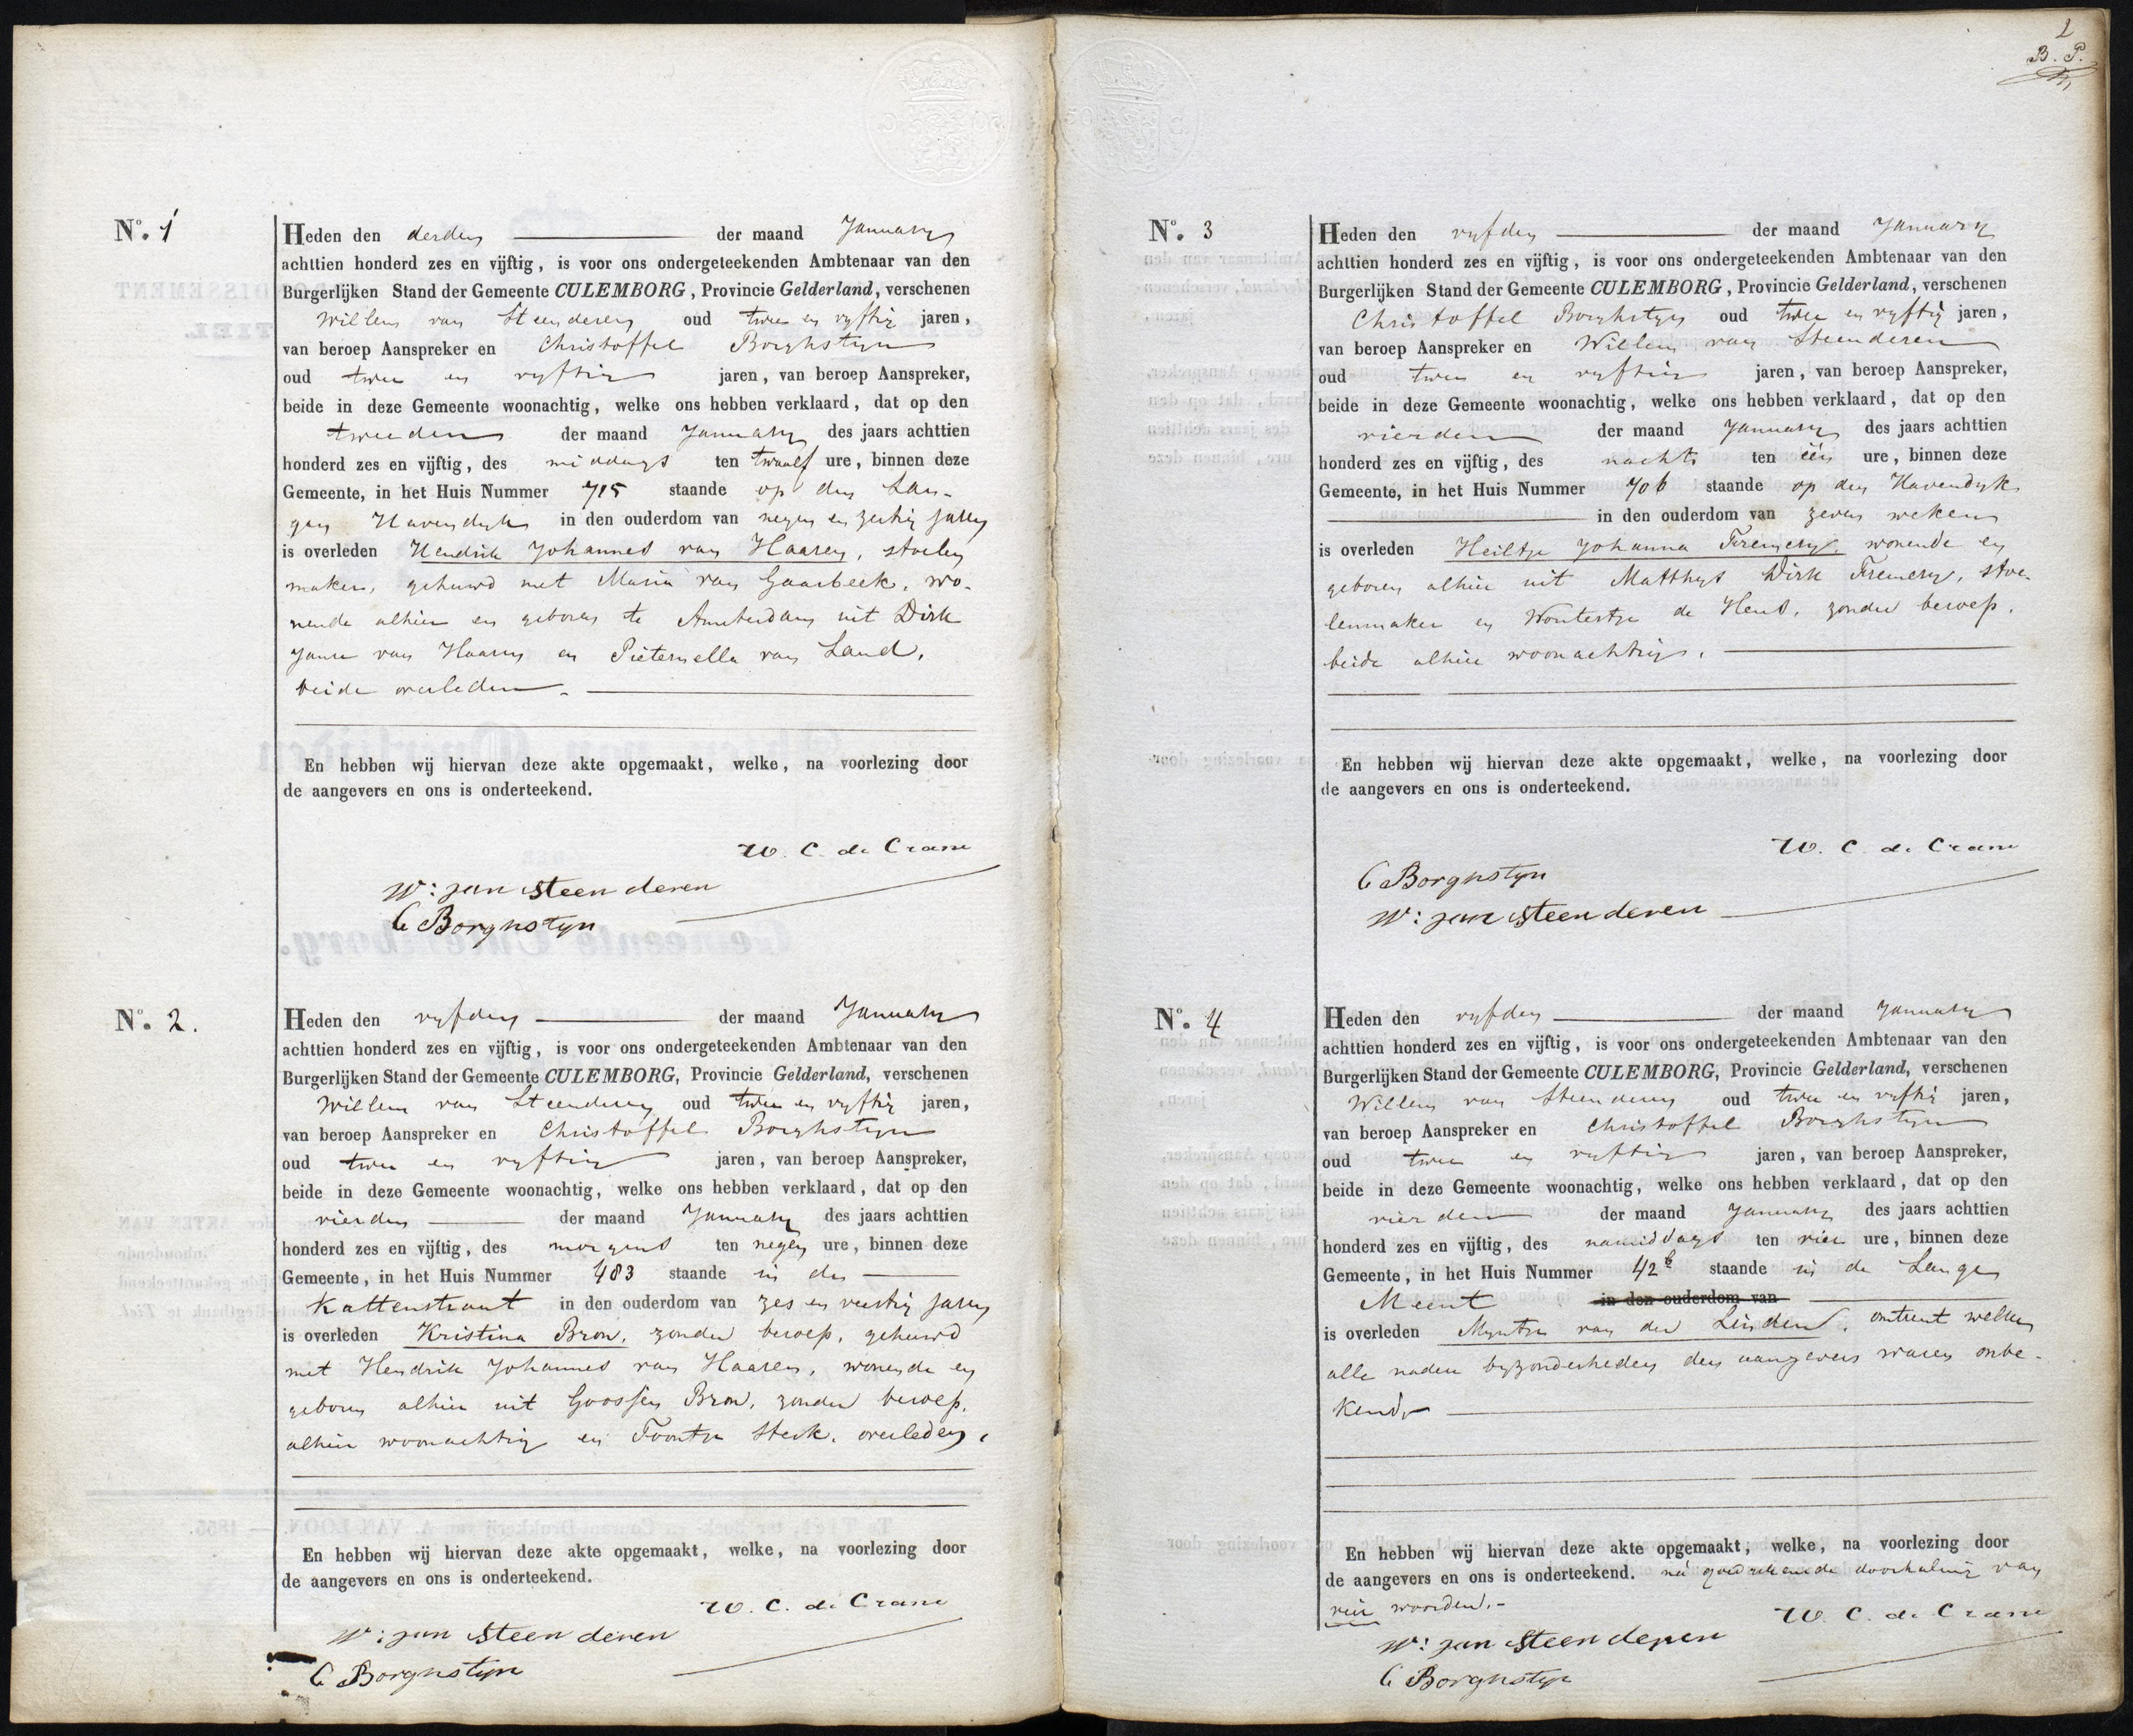 No. 1
Heden den derden der maand January
achttien honderd zes en vijftig, is voor ons ondergeteekenden Ambtenaar van den
Burgerlijken Stand der Gemeente CULEMBORG, Provincie Gelderland, verschenen
Willem van Steenderen oud twee en vyftig jaren,
van beroep Aanspreker en Christoffel Borghstyn
oud twee en vyftig jaren, van beroep Aanspreker,
beide in deze Gemeente woonachtig, welke ons hebben verklaard, dat op den
tweeden der maand January des jaars achttien
honderd zes en vijftig, des middags ten twaalf ure, binnen deze
Gemeente, in het Huis Nummer 715 staande op den Lan-
gen Havendyk in den ouderdom van negen en zestig jaren
is overleden Hendrik Johannes van Haaren, stoelen
maker, gehuwd met Maria van Gaasbeek, wo-
nende alhier en geboren te Amsterdam uit Dirk
Janse van Haaren en Pieternella van Land,
beide overleden.
En hebben wij hiervan deze akte opgemaakt, welke, na voorlezing door
de aangevers en ons is onderteekend.
W. C. de Crane
W: van steenderen
C Borghstyn
No. 2.
Heden den vyfden der maand January
achttien honderd zes en vijftig, is voor ons ondergeteekenden Ambtenaar van den
Burgerlijken Stand der Gemeente CULEMBORG, Provincie Gelderland, verschenen
Willem van Steenderen oud twee en vyftig jaren,
van beroep Aanspreker en Christoffel Borghstyn
oud twee en vyftig jaren, van beroep Aanspreker,
beide in deze Gemeente woonachtig, welke ons hebben verklaard, dat op den
vierden der maand January des jaars achttien
honderd zes en vijftig, des morgens ten negen ure, binnen deze
Gemeente, in het Huis Nummer 483 staande in de
Kattenstraat in den ouderdom van zes en veertig jaren
is overleden Kristina Bron, zonder beroep, gehuwd
met Hendrik Johannes van Haaren, wonende en
geboren alhier uit Goossen Bron, zonder beroep,
alhier woonachtig en Toontje Sterk, overleden,
En hebben wij hiervan deze akte opgemaakt, welke, na voorlezing door
de aangevers en ons is onderteekend.
W. C. de Crane
W: van steenderen
C Borghstyn
2
B. P.
No. 3
Heden den vyfden der maand January
achttien honderd zes en vijftig, is voor ons ondergeteekenden Ambtenaar van den
Burgerlijken Stand der Gemeente CULEMBORG, Provincie Gelderland, verschenen
Christoffel Borghstyn oud twee en vyftig jaren,
van beroep Aanspreker en Willem van Steenderen
oud twee en vyftig jaren, van beroep Aanspreker,
beide in deze Gemeente woonachtig, welke ons hebben verklaard, dat op den
vierden der maand January des jaars achttien
honderd zes en vijftig, des nachts ten één ure, binnen deze
Gemeente, in het Huis Nummer 706 staande op den Havendyk
in den ouderdom van zeven weken
is overleden Heiltje Johanna Fremery, wonende en
geboren alhier uit Matthys Dirk Fremery, stoe-
lenmaker en Woutertje de Heus, zonder beroep,
beide alhier woonachtig.
En hebben wij hiervan deze akte opgemaakt, welke, na voorlezing door
de aangevers en ons is onderteekend.
W. C. de Crane
C Borghstyn
W: van steenderen
No. 4
Heden den vyfden der maand January
achttien honderd zes en vijftig, is voor ons ondergeteekenden Ambtenaar van den
Burgerlijken Stand der Gemeente CULEMBORG, Provincie Gelderland, verschenen
Willem van Steenderen oud twee en vyftig jaren,
van beroep Aanspreker en Christoffel Borghstyn
oud twee en vyftig jaren, van beroep Aanspreker,
beide in deze Gemeente woonachtig, welke ons hebben verklaard, dat op den
vierden der maand January des jaars achttien
honderd zes en vijftig, des namiddags ten vier ure, binnen deze
Gemeente, in het Huis Nummer 42b staande in de Lange
Meent in den ouderdom van
is overleden Myntje van der Linden, omtrent welken
alle nadere byzonderheden den aangevers waren onbe-
kend.
En hebben wij hiervan deze akte opgemaakt, welke, na voorlezing door
de aangevers en ons is onderteekend. na goedgekeurde doorhaling van
vier woorden.-
W. C. de Crane
W: van steenderen
C Borghstyn